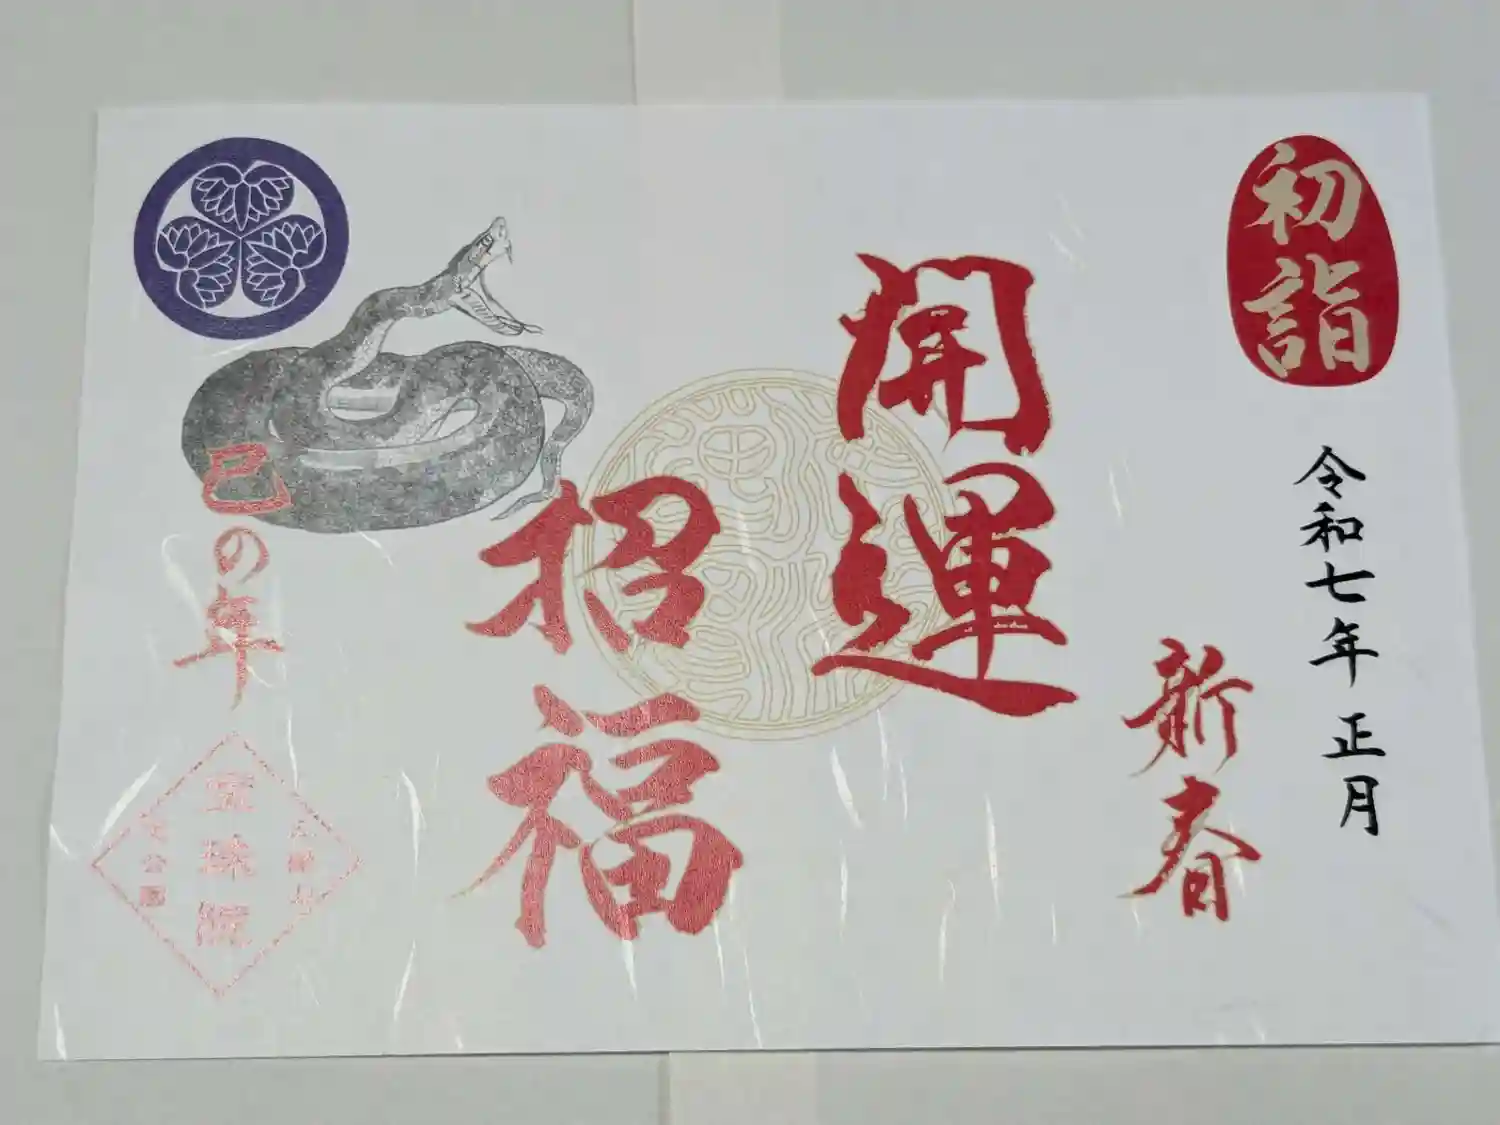 初詣
令和七年 正月
新春
開運
招福
巳の年
宝珠院
芝公園